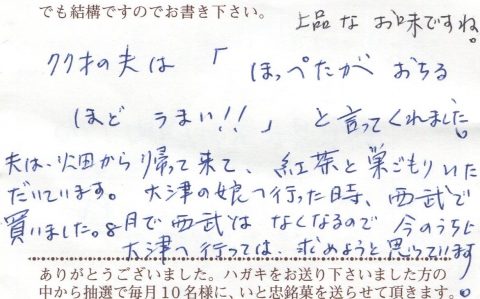 でも結構ですのでお書き下さい。
上品な お味ですね。
77才の夫は「ほっぺたが おちる
ほど うまい!!」と言ってくれました。
夫は、畑から帰って来て、紅茶と巣ごもりいた
だいています。大津の娘へ行った時、西武で
買いました。8月で西武は なくなるので 今のうちに
大津へ行っては、求めようと思っています。
ありがとうございました。ハガキをお送り下さいました方の
中から抽選で毎月10名様に、いと忠銘菓を送らせて頂きます。